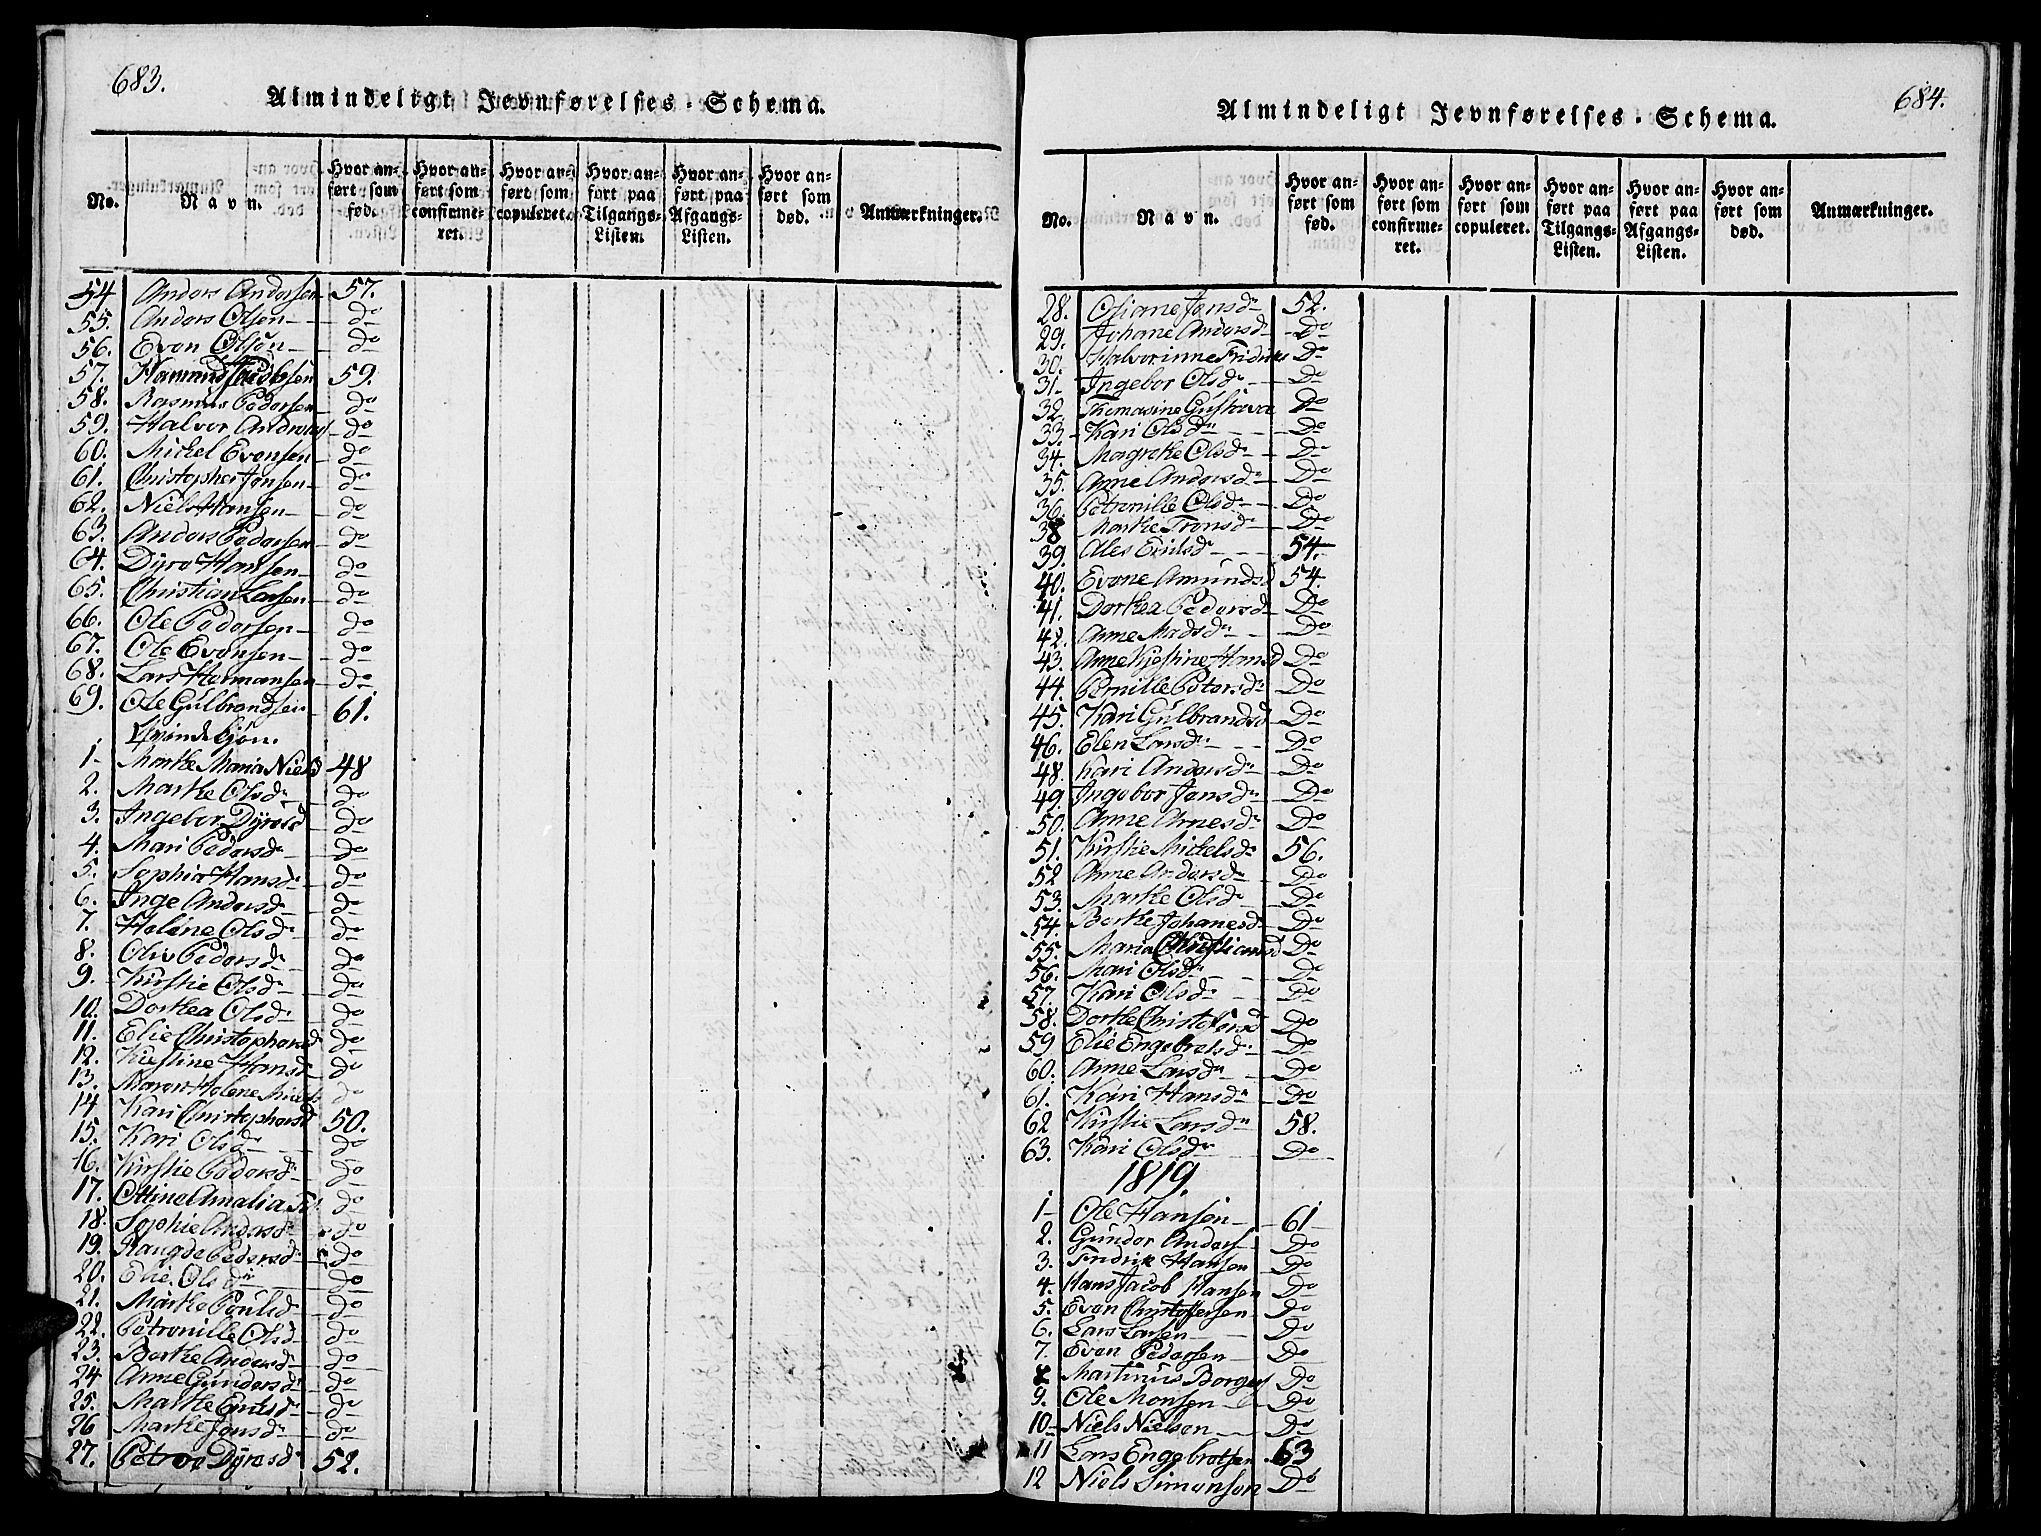 683.
Almindeligt Jevnførelses-Schema.
No.
Navn.
Hvor anført som fød.
Hvor anført som confirmeret.
Hvor anført som copuleret.
Hvor anført paa Tilgangs-Listen.
Hvor anført paa Afgangs-Listen.
Hvor anført som død.
Anmærkninger.
54 Anders Andersen 57.
55. Anders Olsen do
56. Even Olsen do
57. Hermand Jacobsen 59.
58. Rasmus Pedersen do
59. Halvor Andreas do
60. Mickel Evensen do
61. Christopher Jonsen do
62. Niels Hansen do
63. Anders Pedersen do
64. Dyre Hansen do
65. Christian Larsen do
66. Ole Pedersen do
67. Ole Evensen do
68. Lars Hermansen do
69. Ole Gulbrandsen 61.
Qvindekjøn.
1- Marthe Maria Nielsd 48
2. Marthe Olsdr do
3. Ingebor Dyresd do
4. Mari Pedersdr do
5. Sophia Hansdr do
6. Inge Andersdr do
7. Helene Olsdr do
8. Oliv Pedersdr do
9. Kirstie Olsdr do
10. Dorthea Olsdr do
11. Elie Christophersd do
12. Kiestine Hansd do
13. Maren Helene Niels do
14 Kari Christophersd 50.
15. Kari Olsdr do
16. Kirstie Pedersdr do
17. Ottine Amalia do
18. Sophie Andersdr do
19. Raugde Pedersdr do
20. Elie Olsdr do
21. Marthe Poulsd do
22. Petronille Olsd do
23. Berthe Andersd do
24 Anne Gundersdr do
25. Marthe Erichsdr do
26 Marthe Jonsdr do
27. Petroe Dyresdr 52.
684.
Almindeligt Jevnførelses-Schema.
No.
Navn.
Hvor anført som fød.
Hvor anført som confirmeret.
Hvor anført som copuleret.
Hvor anført paa Tilgangs-Listen.
Hvor anført paa Afgangs-Listen.
Hvor anført som død.
Anmærkninger.
28. Oliane Jensdr 52.
29. Johane Andersd Do
30. Halvorinne Fridrics Do
31- Ingebor Olsdr Do
32. Thomasine Gustava Do
33. Kari Olsdr Do
34. Magrethe Olsdr Do
35. Anne Andersdr Do
36. Petronille Olsdr Do
38 Marthe Tronsdr Do
39. Ales Erichsdr 54.
40. Evene Amundsd 54.
41. Dorthea Pedersdr Do
42. Anne Madsdr Do
43. Anne Kjestine Hansd Do
44. Pernille Petersdr Do
45. Kari Gulbrandsd Do
46. Elen Larsdr Do
48. Kari Andersdr Do
49. Ingebor Jensdr Do
50. Anne Arnesdr Do
51. Kirstie Mickelsdr 56.
52 Anne Andersdr Do
53. Marthe Olsdr Do
54. Berthe Johanesdr Do
55. Maria Christiansd Do
56. Mari Olsdr Do
57. Kari Olsdr Do
58. Dorthe Christofersd Do
59 Elie Engebretsdr Do
60. Anne Larsdr Do
61. Kari Hansdr Do
62 Kirstie Larsdr 58.
63. Kari Olsdr Do
1819.
1- Ole Hansen 61
2. Gunder Anders Do
3. Fredrik Hansen Do
4. Hans Jacob Hansen Do
5. Even Christoffersen Do
6. Lars Larsen Do
7. Even Pedersen Do
8 Martinus Borgers Do
9. Ole Monsen Do
10- Niels Nielsen Do
11 Lars Engebretsen 63
12 Niels Simensen Do